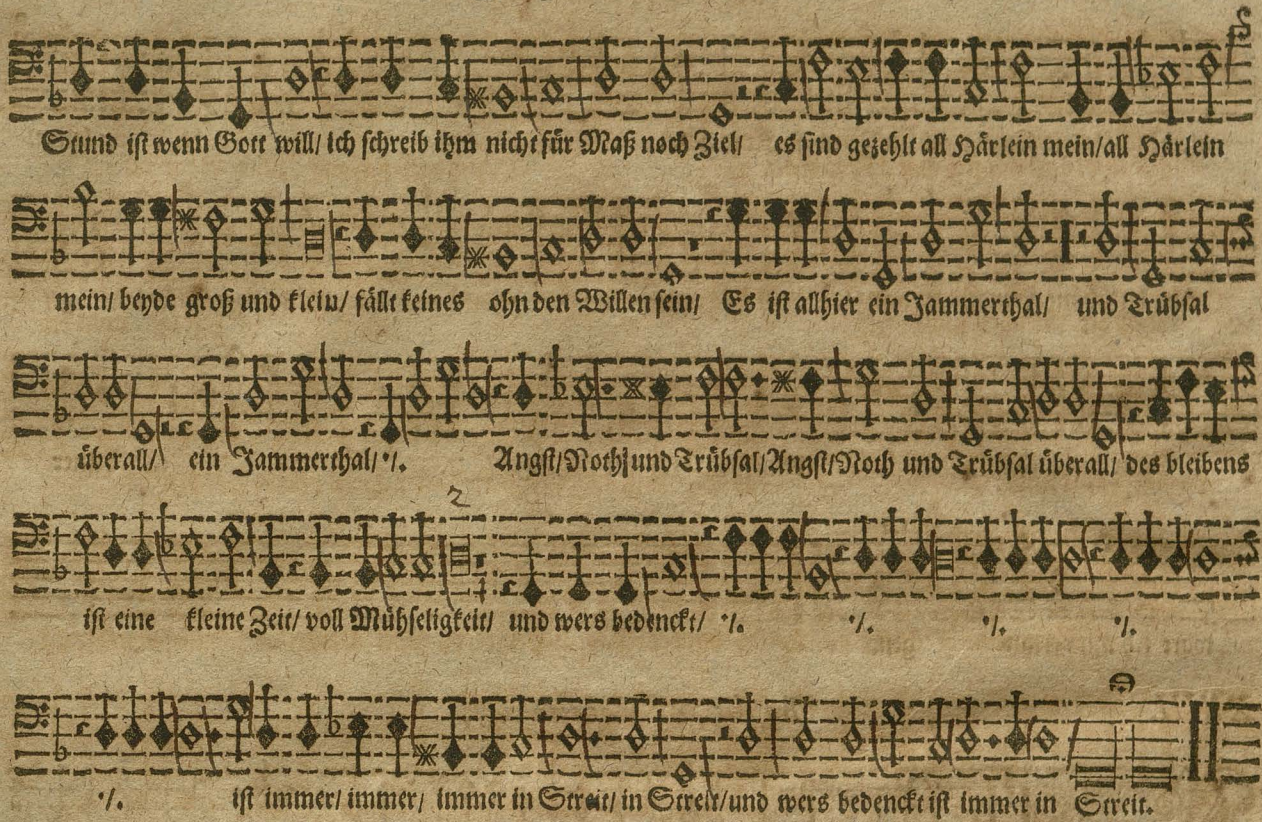 Stund ist wenn Gott will/ ich schreib ihm nicht für Maß noch Ziel/ es sind gezehlt all Härlein mein/ all Härlein
mein/ beyde groß und klein/ fällt keines ohn den Willen sein/ Es ist allhier ein Jammerthal/ und Trübsal
überall/ ein Jammerthal/ ·/. Angst/ Noth/ und Trübsal/ Angst/ Noth und Trübsal überall/ des bleibens
2
ist eine kleine Zeit/ voll Mühseligkeit/ und wers bedenckt/ ·/. ·/. ·/. ·/.
·/. ist immer/ immer/ immer in Streit/ in Streit/ und wers bedenckt ist immer in Streit.